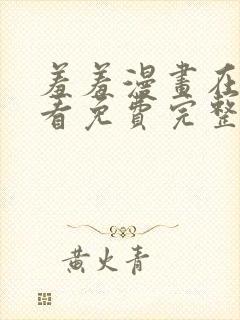 羞羞漫畫在
看免費完整
黃火青